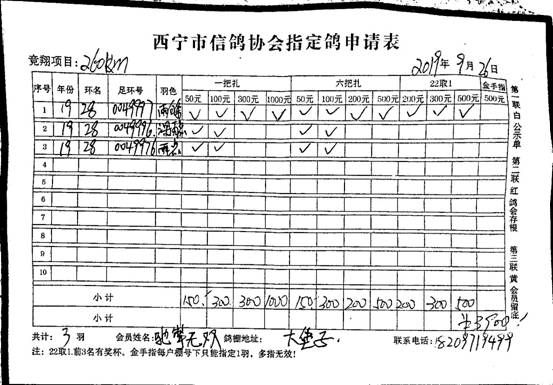 西宁市信鸽协会指定鸽申请表
竞翔项目：260km 2019年9月26日
序号 年份 环名 足环号 羽色 一把扎 六把扎 22取1 金手指
50元 100元 300元 1000元 50元 100元 300元 500元 200元 300元 500元 500元
1 19 28 0049997 雨 ✓ ✓ ✓ ✓ ✓ ✓ ✓ ✓ ✓ ✓ ✓
2 19 28 0049996 ✓ ✓ ✓ ✓
3 19 28 0049976 雨 ✓ ✓ ✓ ✓
4
5
6
7
8
9
10
小计 150 300 300 1000 150 300 200 500 200 300 500
小计 ¥3900
共计：3羽 会员姓名： 鸽棚地址：大堡子 联系电话：18209719499
注：22取1.前3名有奖杯。金手指每户棚号下只能指定1羽，多指无效！
第一联 白 公示单 第二联 红 鸽会存根 第三联 黄 会员留注